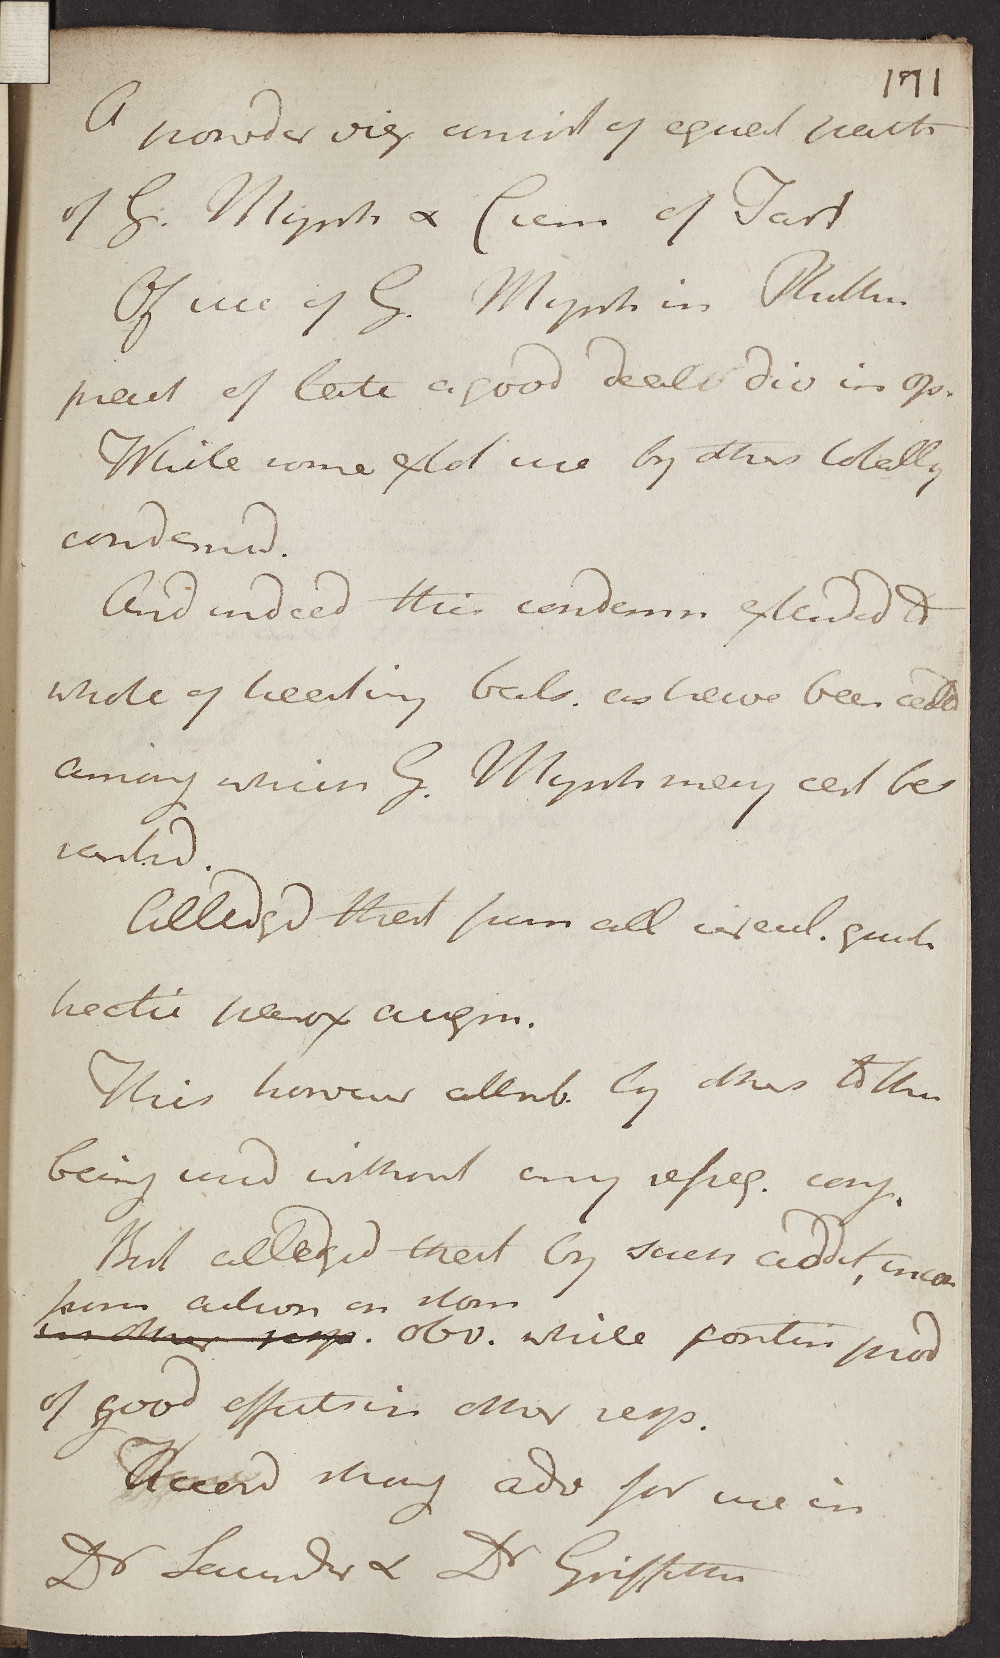 171
A powder viz consist of equal parts
of G. Myrrh & Crem of Tart
Of use of G. Myrrh in Phthis
pract of late a good deal div in op.
While some extol use by others totally
condemnd.
And indeed this condemn extended to
whole of heating bals. as have been calld
among which G. Myrrh may cert be
rankd.
Alledgd that from all circul. quick
hectic parox augm.
This however attrib. by others to this
being used without any refrig. conj.
But alledgd that by such addit, incon
from action on stom
in other resp. obv. while contin prod
of good effects in other resp.
Accord strong adv for use in
Dr Saunders & Dr Griffiths